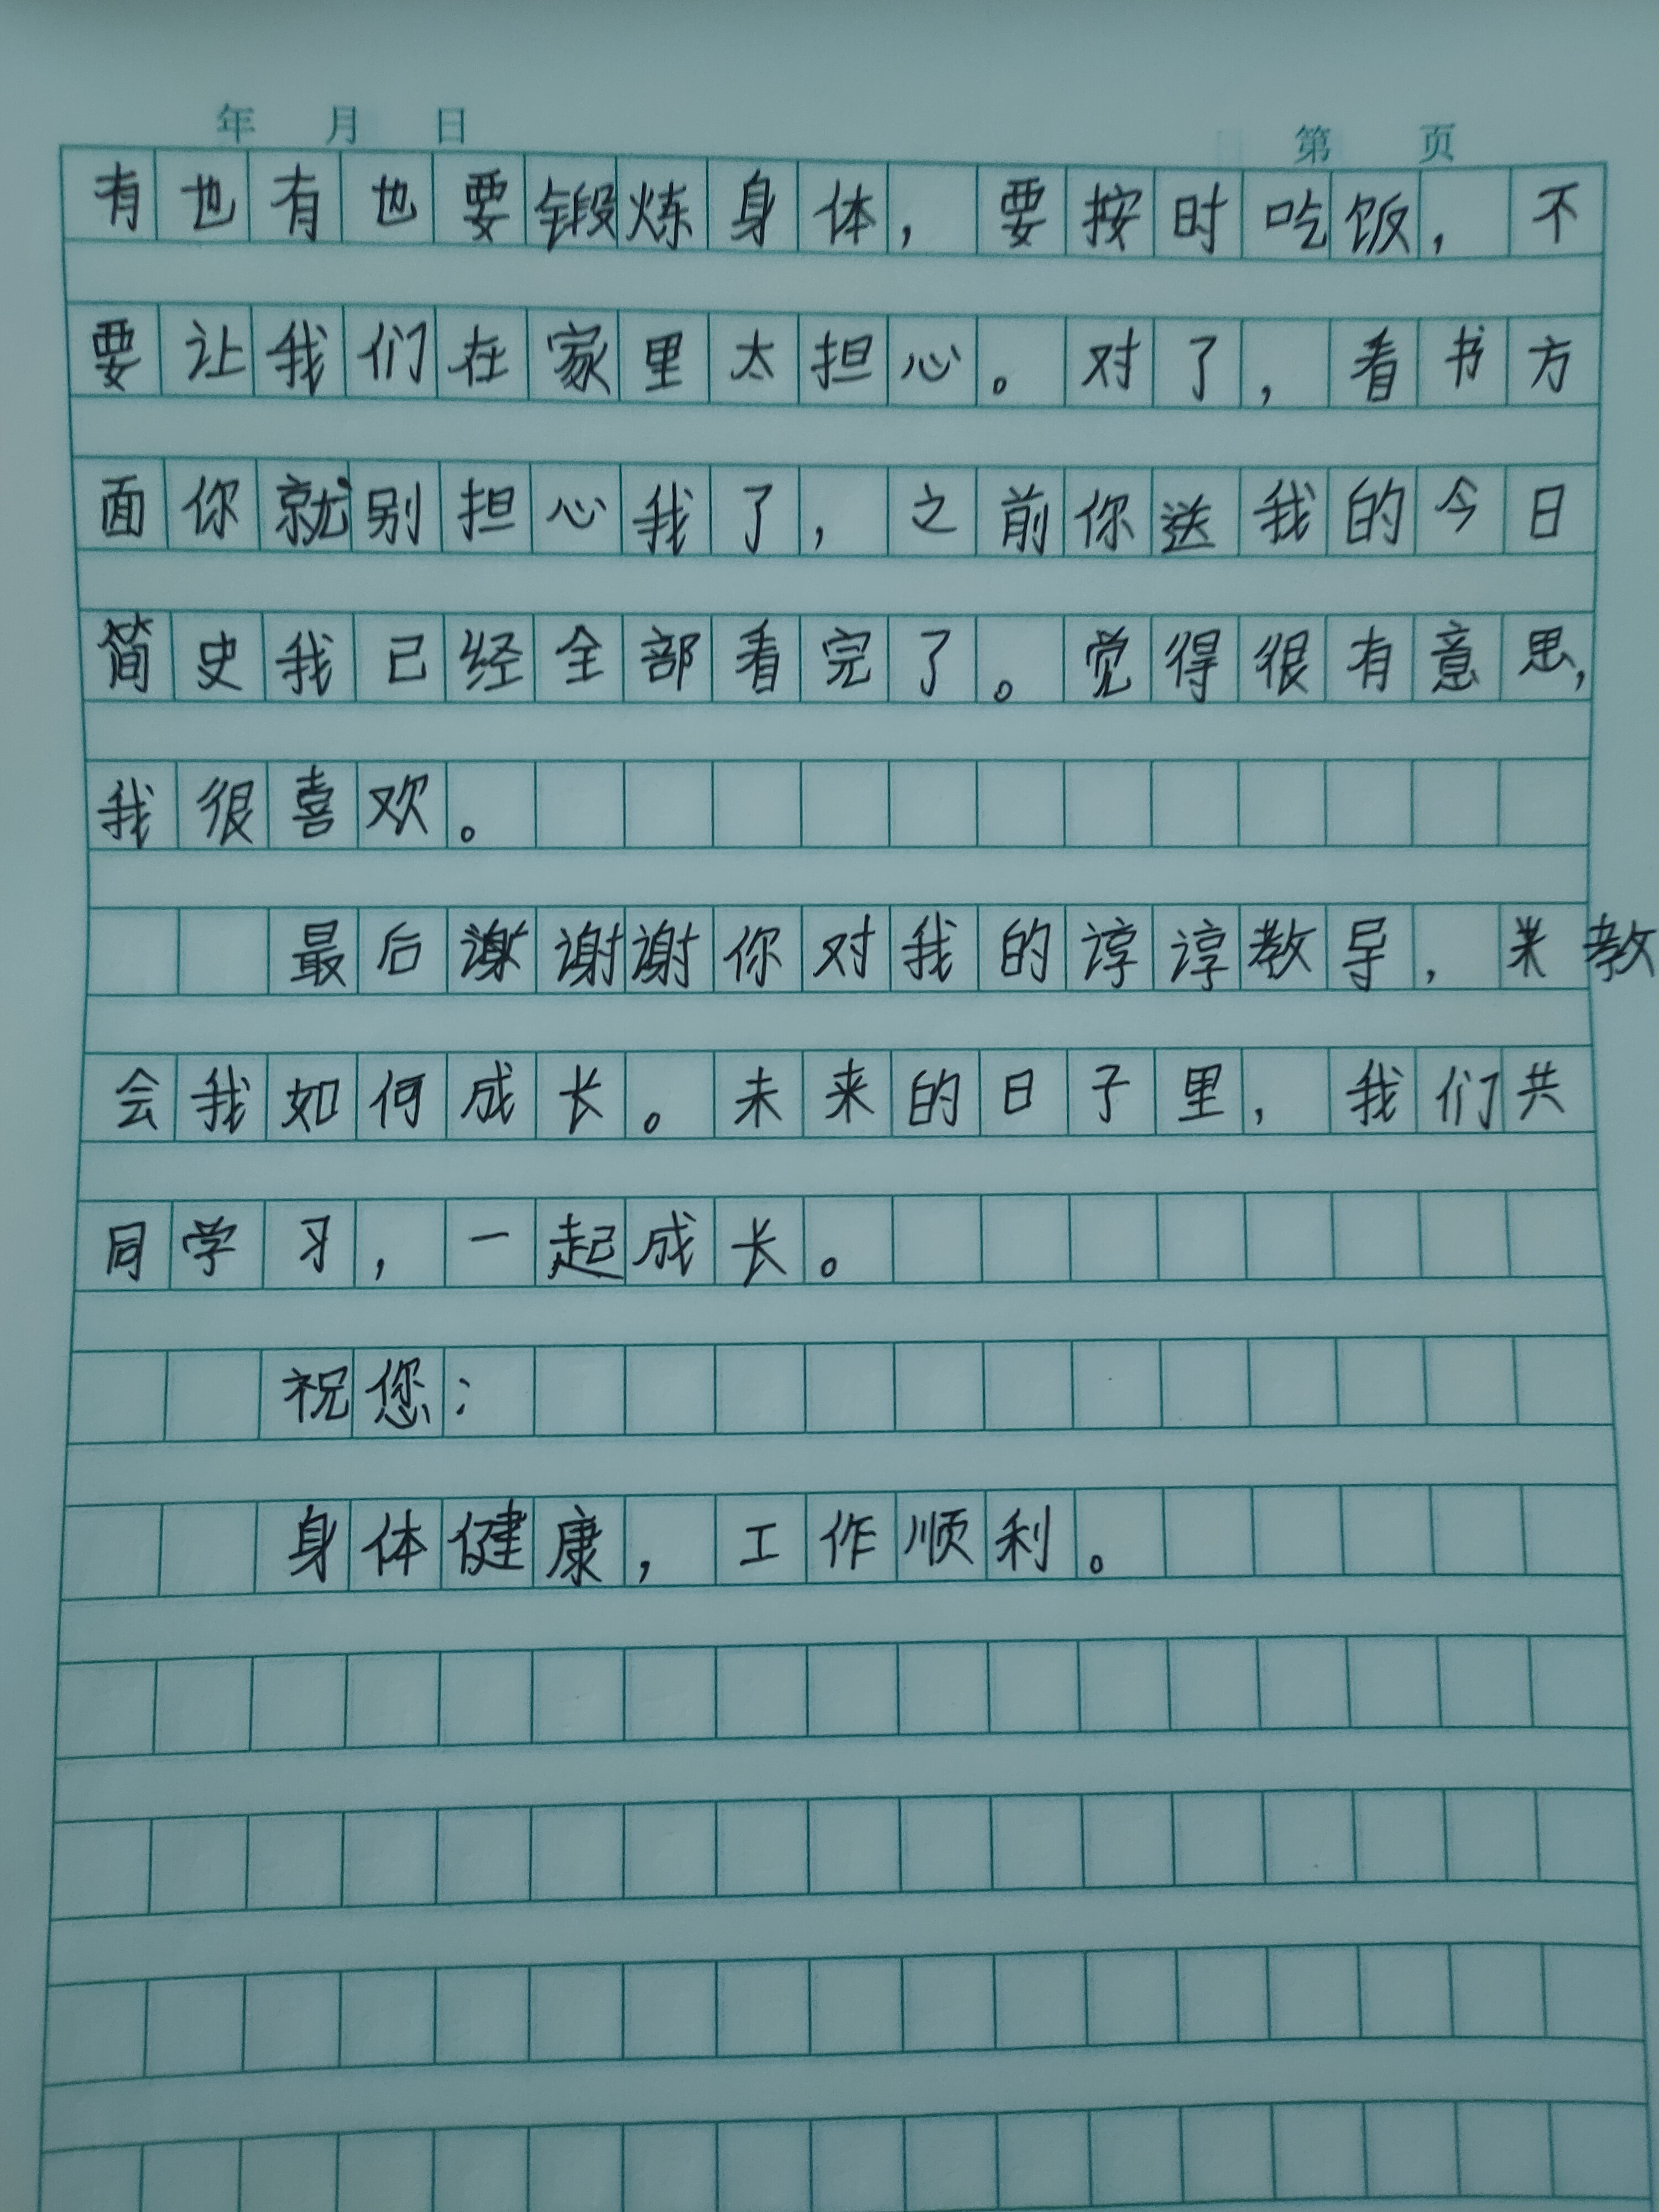 年 月 日 第 页
有也有也要锻炼身体，要按时吃饭，不
要让我们在家里太担心。对了，看书方
面你就别担心我了，之前你送我的今日
简史我已经全部看完了。觉得很有意思，
我很喜欢。
最后谢谢你对我的谆谆教导，教
会我如何成长。未来的日子里，我们共
同学习，一起成长。
祝您：
身体健康，工作顺利。